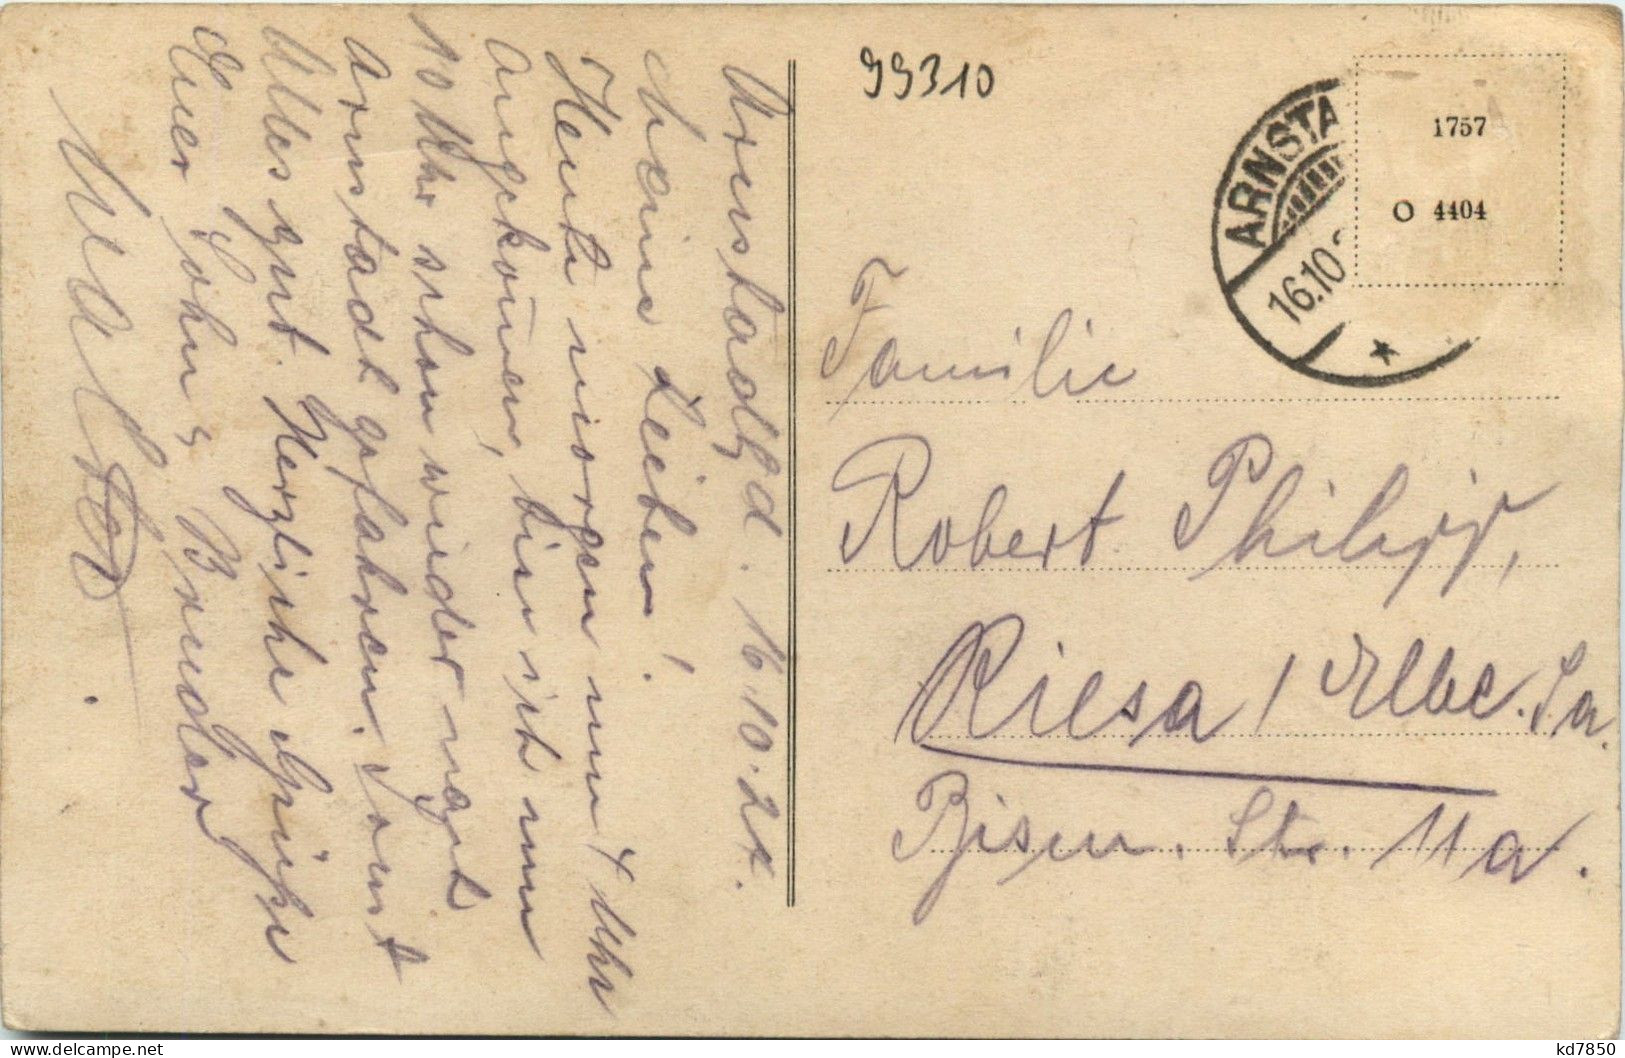 Arnstadt, d. 16.10.24.
Meine Lieben!
Heute morgen um 4 Uhr
angekom̄en, bin ich um
10 Uhr schon wieder nach
Arnstadt gefahren. Sonst
Alles gut. Herzliche Grüße
Euer Sohn & Bruder
Walter.
99310
ARNSTA
16.10
1757
O 4404
Familie
Robert Philipp,
Riesa / Elbe. Sa.
Bism. Str. 11a.
kd7850